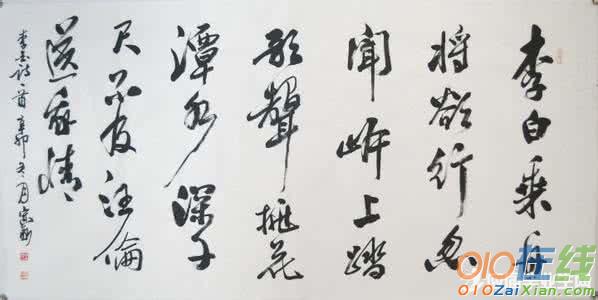 李白乘舟
將欲行忽
聞岸上踏
歌聲桃花
潭水深千
尺不及汪倫
送我情
李白詩一首 辛卯
010在线
010ZaiXian.com